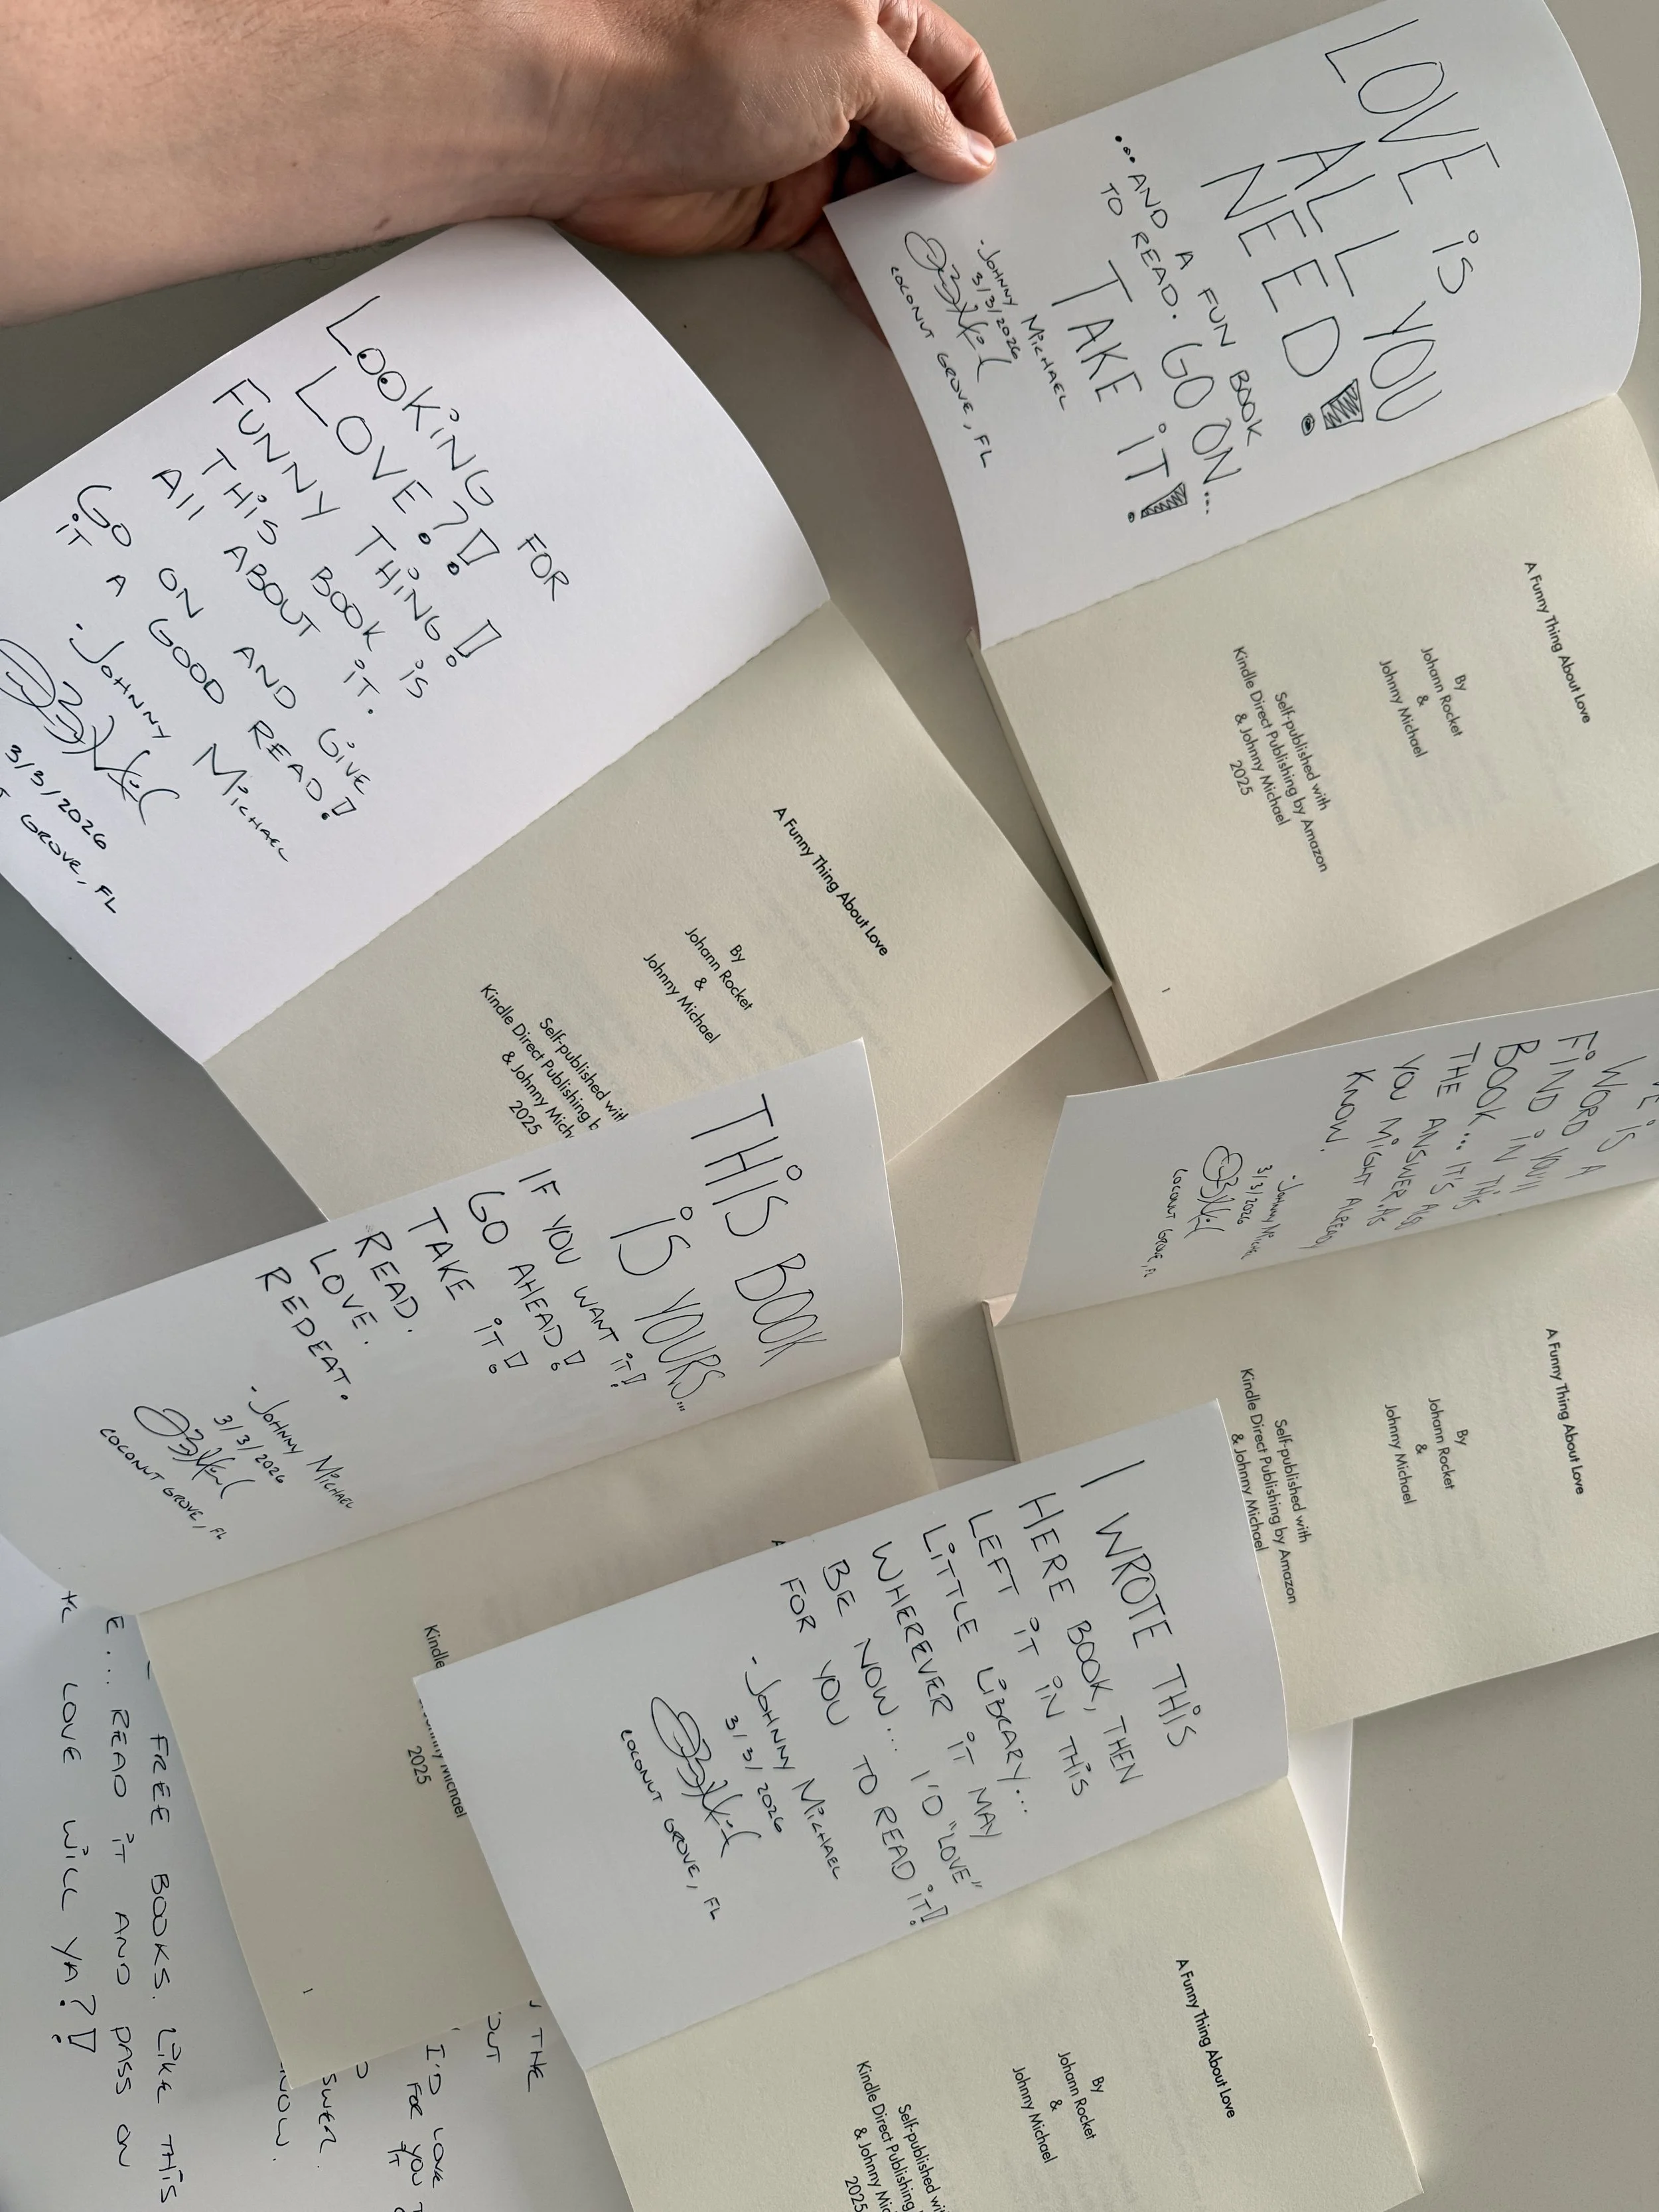 LOVE iS YOU
ALL
NEED!
...AND A FUN BOOK
TO READ. GO ON...
TAKE iT!
-JOHNNY MiCHAEL
3/3/2026
COCONUT GROVE, FL
A Funny Thing About Love
By
Johann Rocket
&
Johnny Michael
Self-published with
Kindle Direct Publishing by Amazon
& Johnny Michael
2025
1
LOOKiNG FOR
LOVE?!
FUNNY THiNG!
THiS BOOK iS
All ABOUT iT.
GO ON AND GiVE
iT A GOOD READ!
-JOHNNY MiCHAEL
3/3/2026
GROVE, FL
A Funny Thing About Love
By
Johann Rocket
&
Johnny Michael
Self-published with
Kindle Direct Publishing b
& Johnny Mich
2025
iS
WORD A
FiND YOU'll
BOOK iN THiS
THE ... iT'S
YOU ANSWER, AS
KNOW. MiGHT ALREADY
3/3/2026
COCONUT GROVE, FL
A Funny Thing About Love
By
Johann Rocket
&
Johnny Michael
Self-published with
Kindle Direct Publishing by Amazon
& Johnny Michael
THiS BOOK
iS YOURS...
iF YOU WANT iT!
GO AHEAD!
TAKE iT!
READ.
LOVE.
REPEAT.
-JOHNNY MiCHAEL
3/3/2026
COCONUT GROVE, FL
Kindle
Johnny Michael
2025
1
I WROTE THiS
HERE BOOK, THEN
LEFT iT iN THiS
LiTTLE LiBRARY...
WHEREVER iT MAY
BE NOW... I'D "LOVE"
FOR YOU TO READ iT!
-JOHNNY MiCHAEL
3/3/2026
COCONUT GROVE, FL
A Funny Thing About Love
By
Johann Rocket
&
Johnny Michael
Self-published wi
Kindle Direct Publishing
& Johnny Mic
2025
THE
OUT
I'D LOVE
FOR YOU
SWER.
NOW.
FREE BOOKS. LiKE THiS
E... READ iT AND PASS ON
LOVE WiLL YA?!